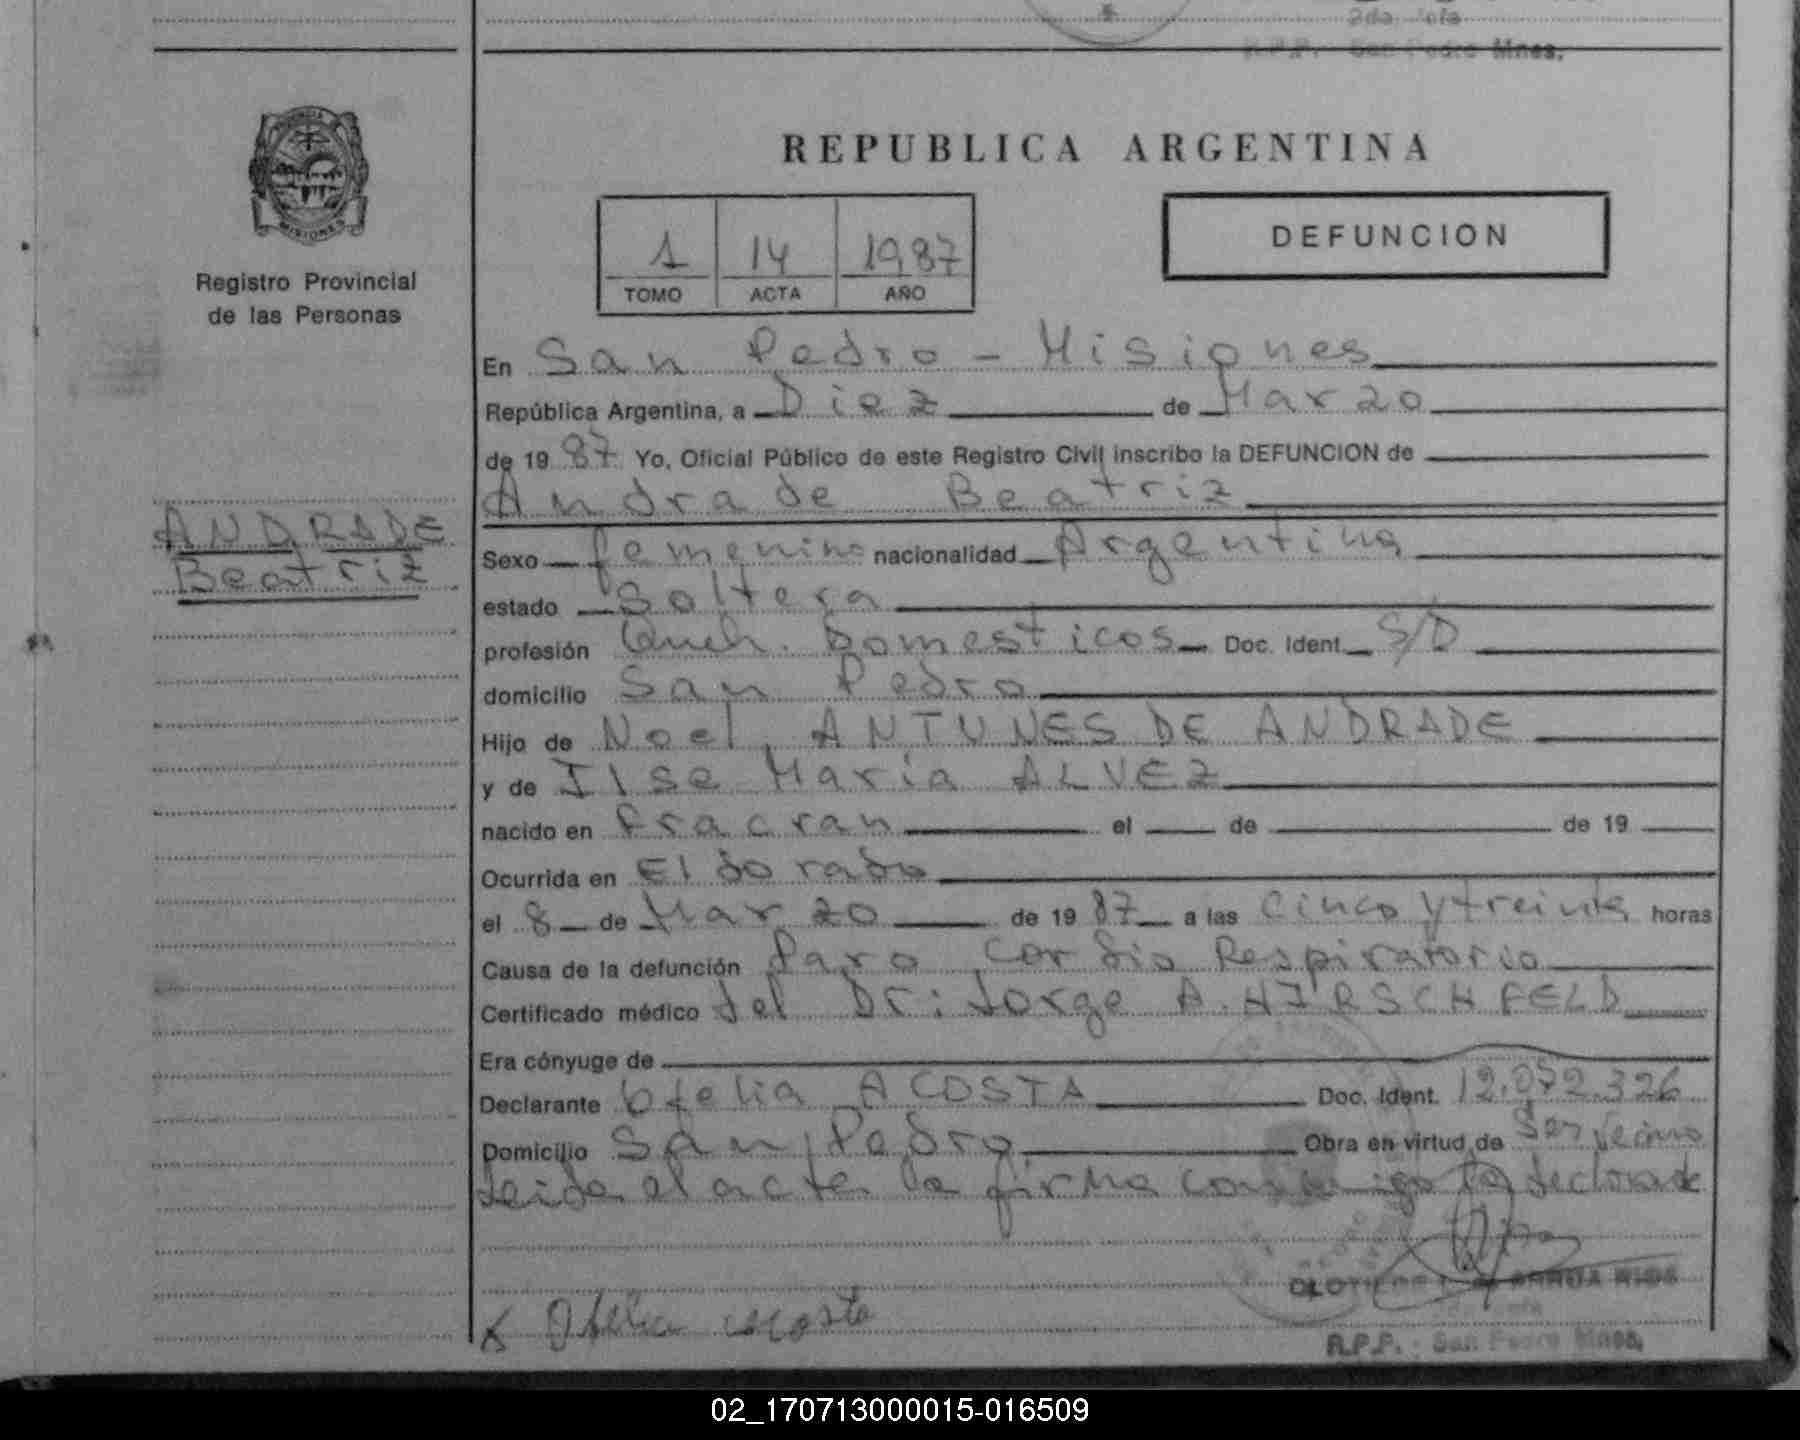 2da. Jefa
R.P.P. San Pedro Mnes.
PROVINCIA
MISIONES
Registro Provincial
de las Personas
ANDRADE
Beatriz
REPUBLICA ARGENTINA
1 14 1987
TOMO ACTA AÑO
DEFUNCION
En San Pedro - Misiones
República Argentina, a Diez de Marzo
de 19 87 Yo, Oficial Público de este Registro Civil inscribo la DEFUNCION de
Andrade Beatriz
Sexo femenino nacionalidad Argentina
estado Soltera
profesión Queh. Domesticos Doc. Ident. S/D
domicilio San Pedro
Hijo de Noel ANTUNES DE ANDRADE
y de Ilse Maria ALVEZ
nacido en Fracran el de de 19
Ocurrida en Eldorado
el 8 de Marzo de 19 87 a las Cinco y treinta horas
Causa de la defunción Paro Cardio Respiratorio
Certificado médico del Dr: Jorge A. HIRSCHFELD
Era cónyuge de
Declarante Ofelia ACOSTA Doc. Ident. 12.072.326
Domicilio San Pedro Obra en virtud de Ser Vecino
Leida el acta la firma conmigo la declarante
ARRUA RIOS
R.P.P. : San Pedro Mnes.
x Ofelia acosta
02_170713000015-016509